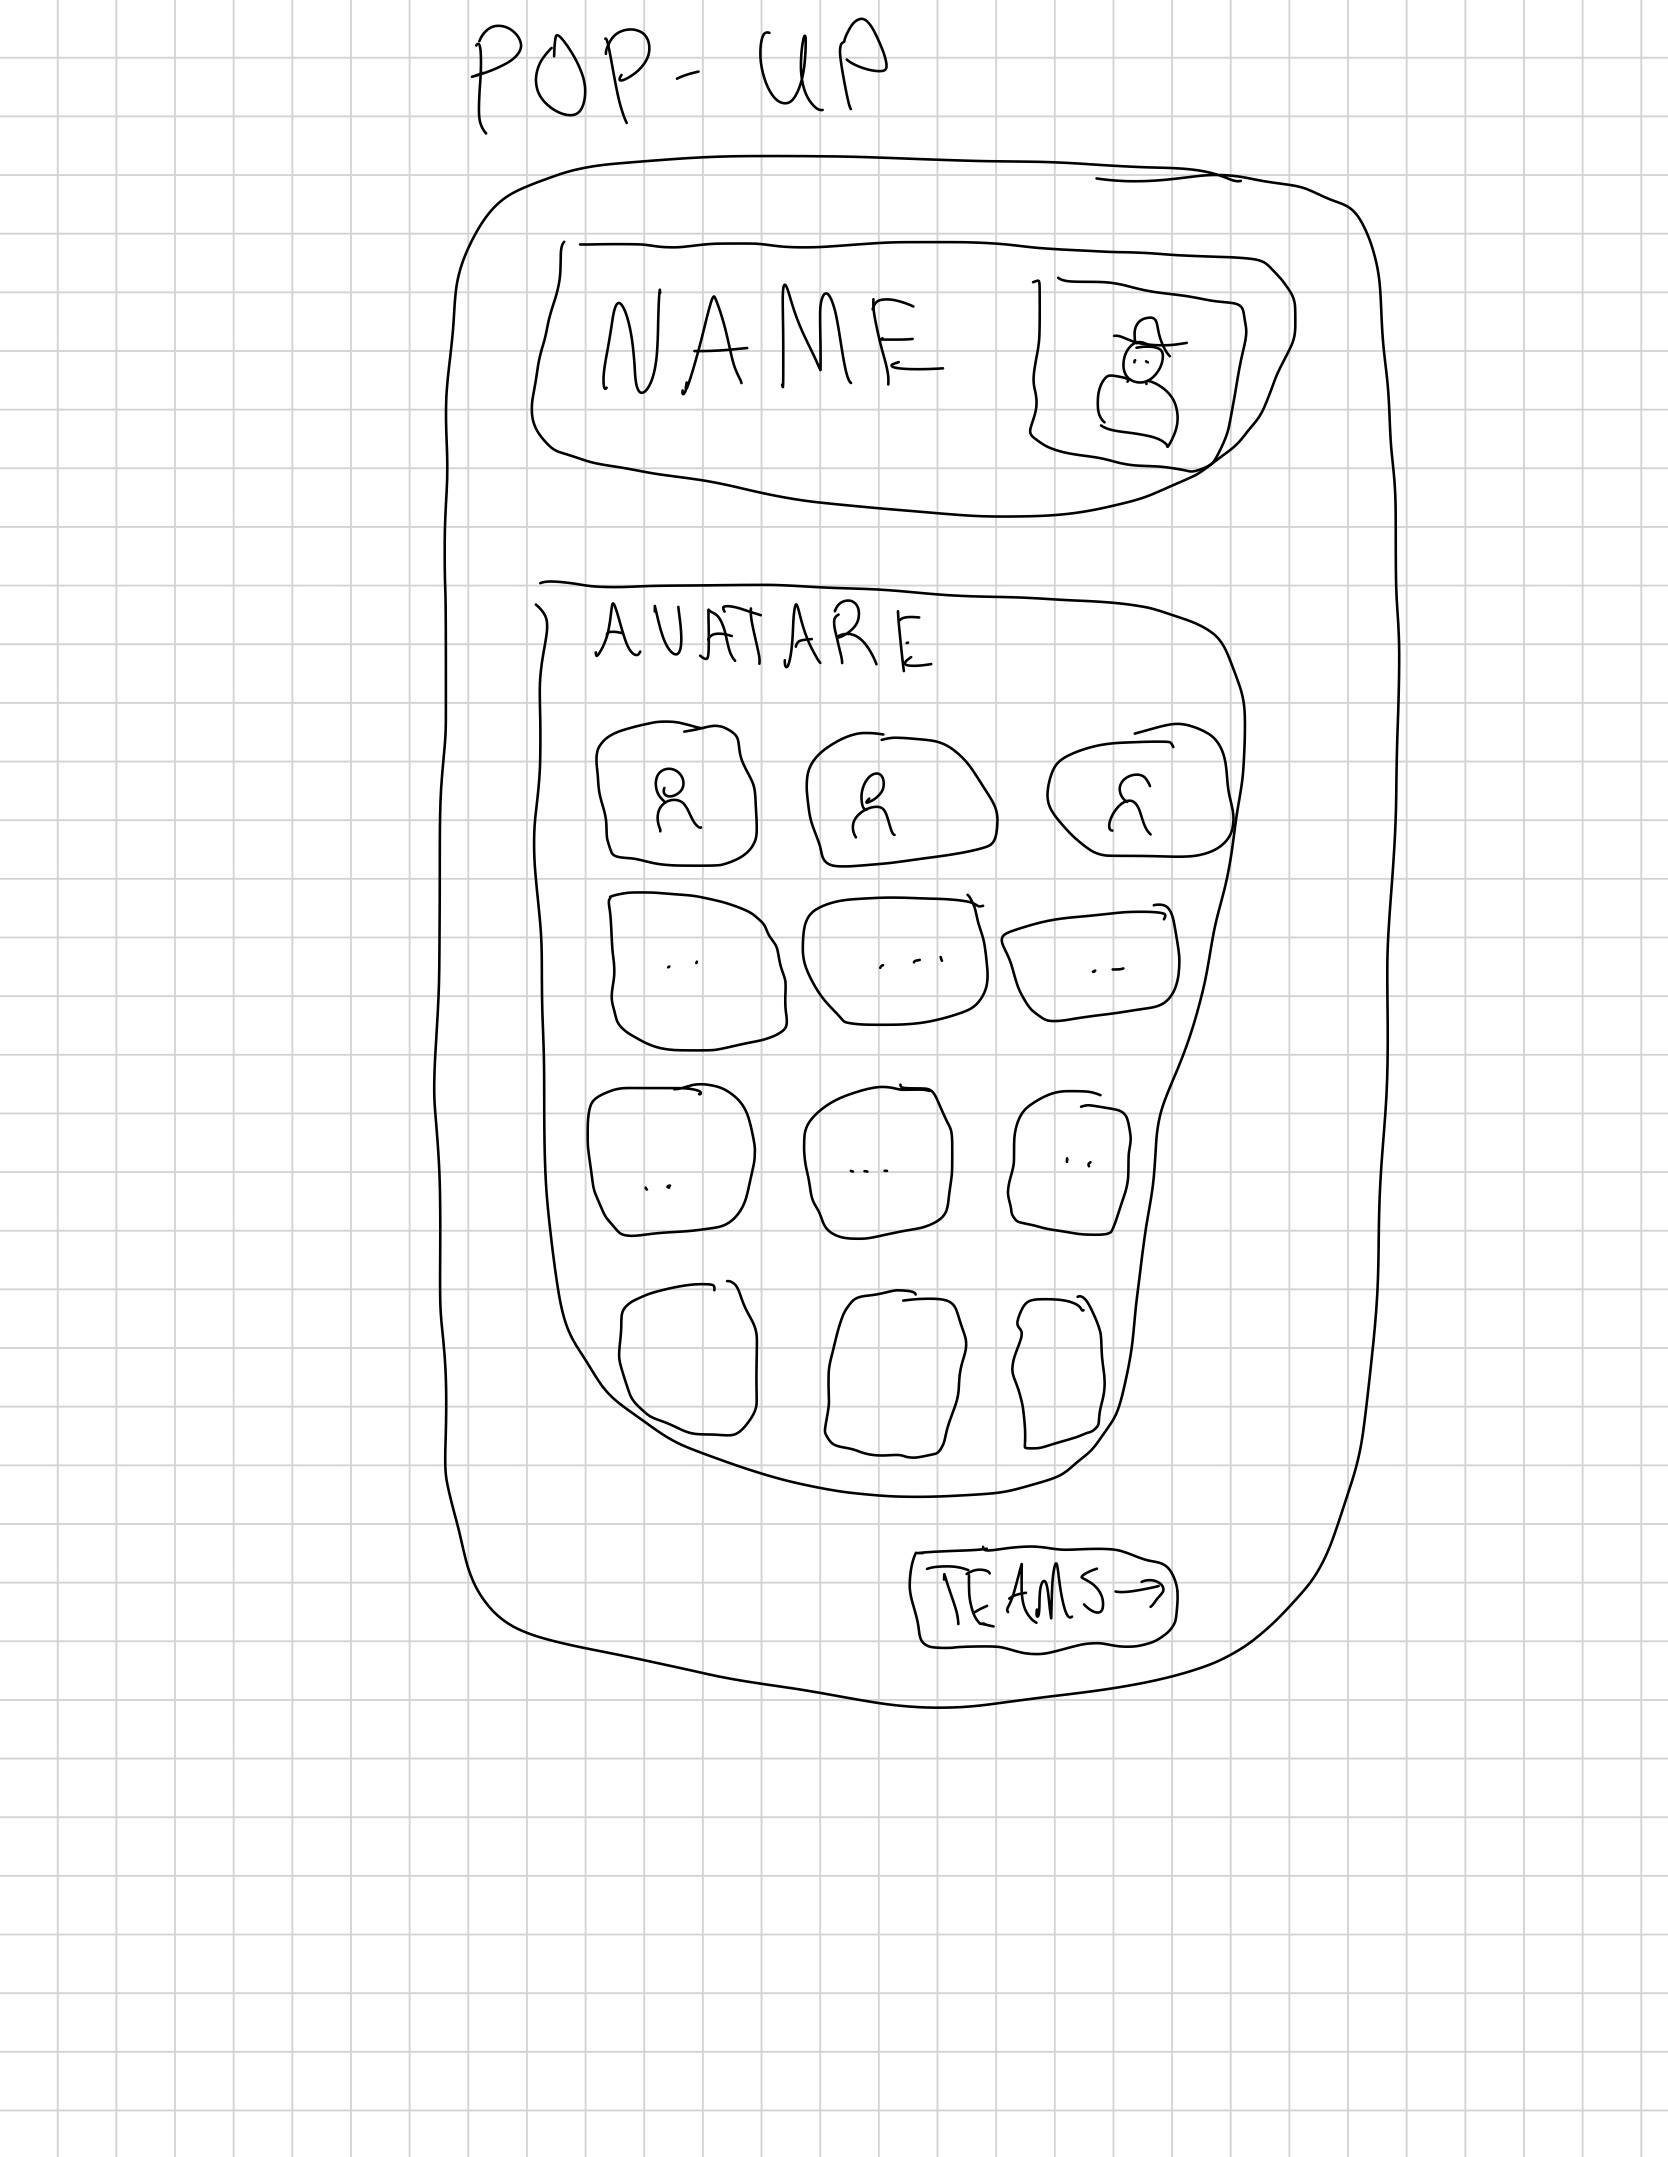 POP-UP
NAME
AVATARE
TEAMS →